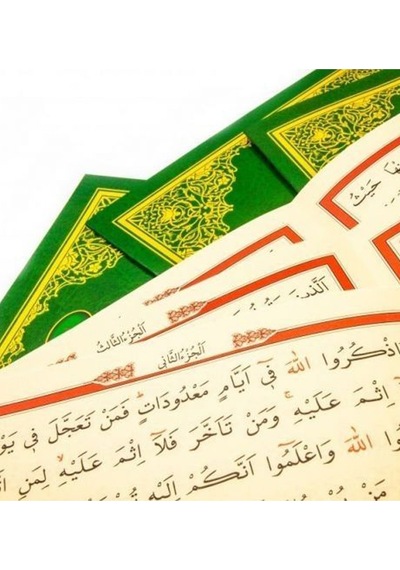 حَيْثُ
اَلْجُزْءُ الثَّالِثُ
اَلْجُزْءُ الثَّانٖى
اذْكُرُوا اللّٰهَ فٖٓى اَيَّامٍ مَعْدُودَاتٍ فَمَنْ تَعَجَّلَ فٖى يَوْ
اِثْمَ عَلَيْهِ وَمَنْ تَاَخَّرَ فَلَٓا اِثْمَ عَلَيْهِ لِمَنِ
اللّٰهَ وَاعْلَمُٓوا اَنَّكُمْ اِلَيْهِ
مَنْ